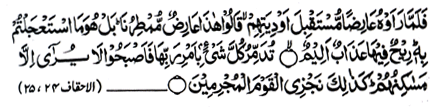 فَلَمَّا رَاَوْهُ عَارِضًا مُّسْتَقْبِلَ اَوْدِيَتِهِمْ قَالُوْا هٰذَا عَارِضٌ مُّمْطِرُنَا ؕ بَلْ هُوَ مَا اسْتَعْجَلْتُمْ
بِهٖ ؕ رِيْحٌ فِيْهَا عَذَابٌ اَلِيْمٌ ۝ تُدَمِّرُ كُلَّ شَيْءٍۭ بِاَمْرِ رَبِّهَا فَاَصْبَحُوْا لَا يُرٰٓى اِلَّا
مَسٰكِنُهُمْ ؕ كَذٰلِكَ نَجْزِى الْقَوْمَ الْمُجْرِمِيْنَ ۝ ــــــــ (الاحقاف ۲۴، ۲۵)